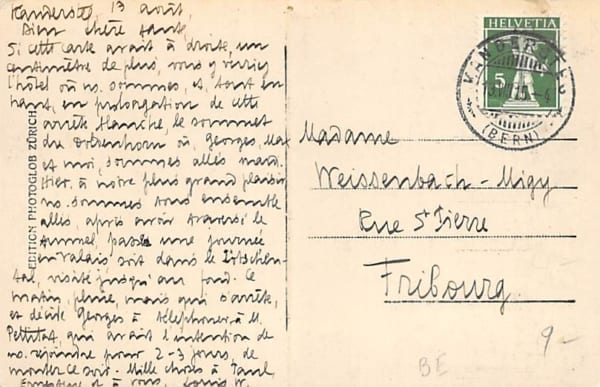 Kandersteg, 13 août,
Bien chère tante,
Si cette carte avait à droite, un
centimètre de plus, vous y verriez
l'hôtel où ns. sommes, et, tout en
haut, en prolongation de cette
arête blanche, le sommet
du où, Georges, Max
et moi, sommes allés mardi.
Hier, à notre plus grand plaisir
ns. sommes tous ensemble
allés, après avoir traversé le
tunnel, passer une journée
en Valais soit dans le Lötschen-
tal, visité jusqu'au fond. Ce
matin, pluie, mais qui s'arrête,
et décide Georges à téléphoner à M.
Pettitat, qui avait l'intention de
ns. rejoindre pour 2-3 jours, de
monter ce soir. Mille choses à Paul,
et à vous, Louis W.
EDITION PHOTOGLOB ZÜRICH
HELVETIA
5
KANDERSTEG
(BERN)
Madame
Weissenbach-Migy
Rue St Pierre
Fribourg
9-
BE